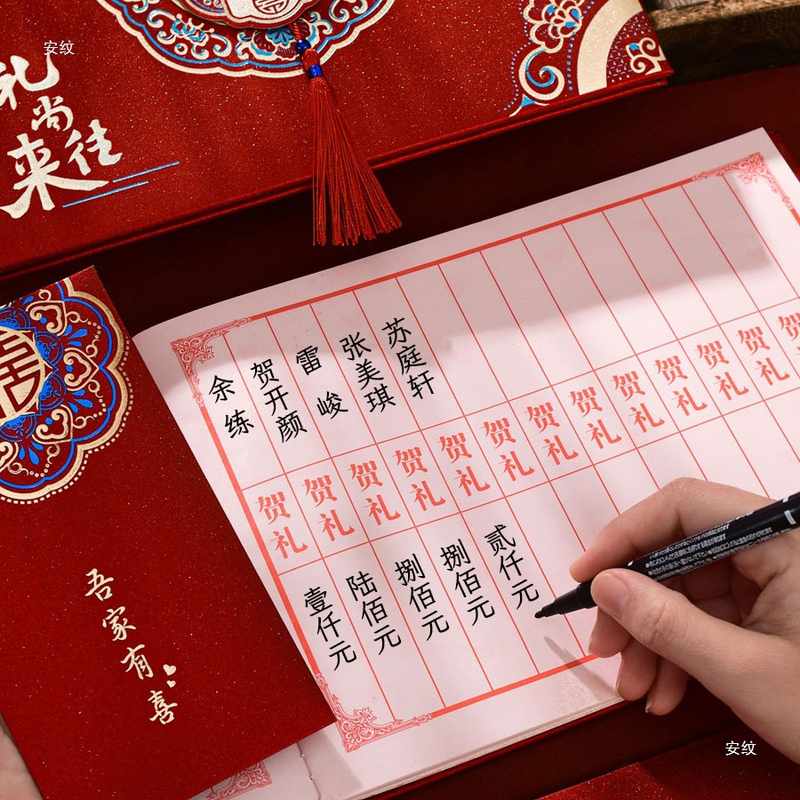 安纹
礼尚往来
吾家有喜
余练
贺开颜
雷峻
张美琪
苏庭轩
贺礼
贺礼
贺礼
贺礼
贺礼
贺礼
贺礼
贺礼
贺礼
贺礼
贺礼
贺礼
贺礼
壹仟元
陆佰元
捌佰元
捌佰元
贰仟元
安纹